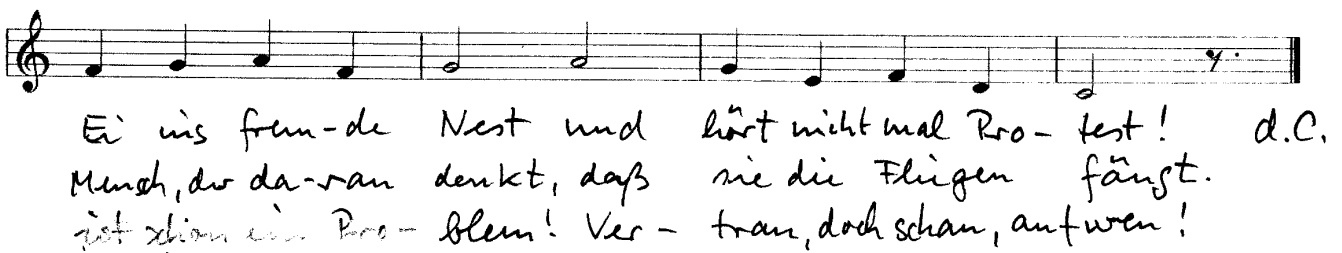 Ei ins frem-de Nest und hört nicht mal Pro-test! d.C.
Mensch, der da-ran denkt, daß sie die Fliegen fängt.
ist schon ein Pro-blem! Ver-trau, doch schau, auf wen!